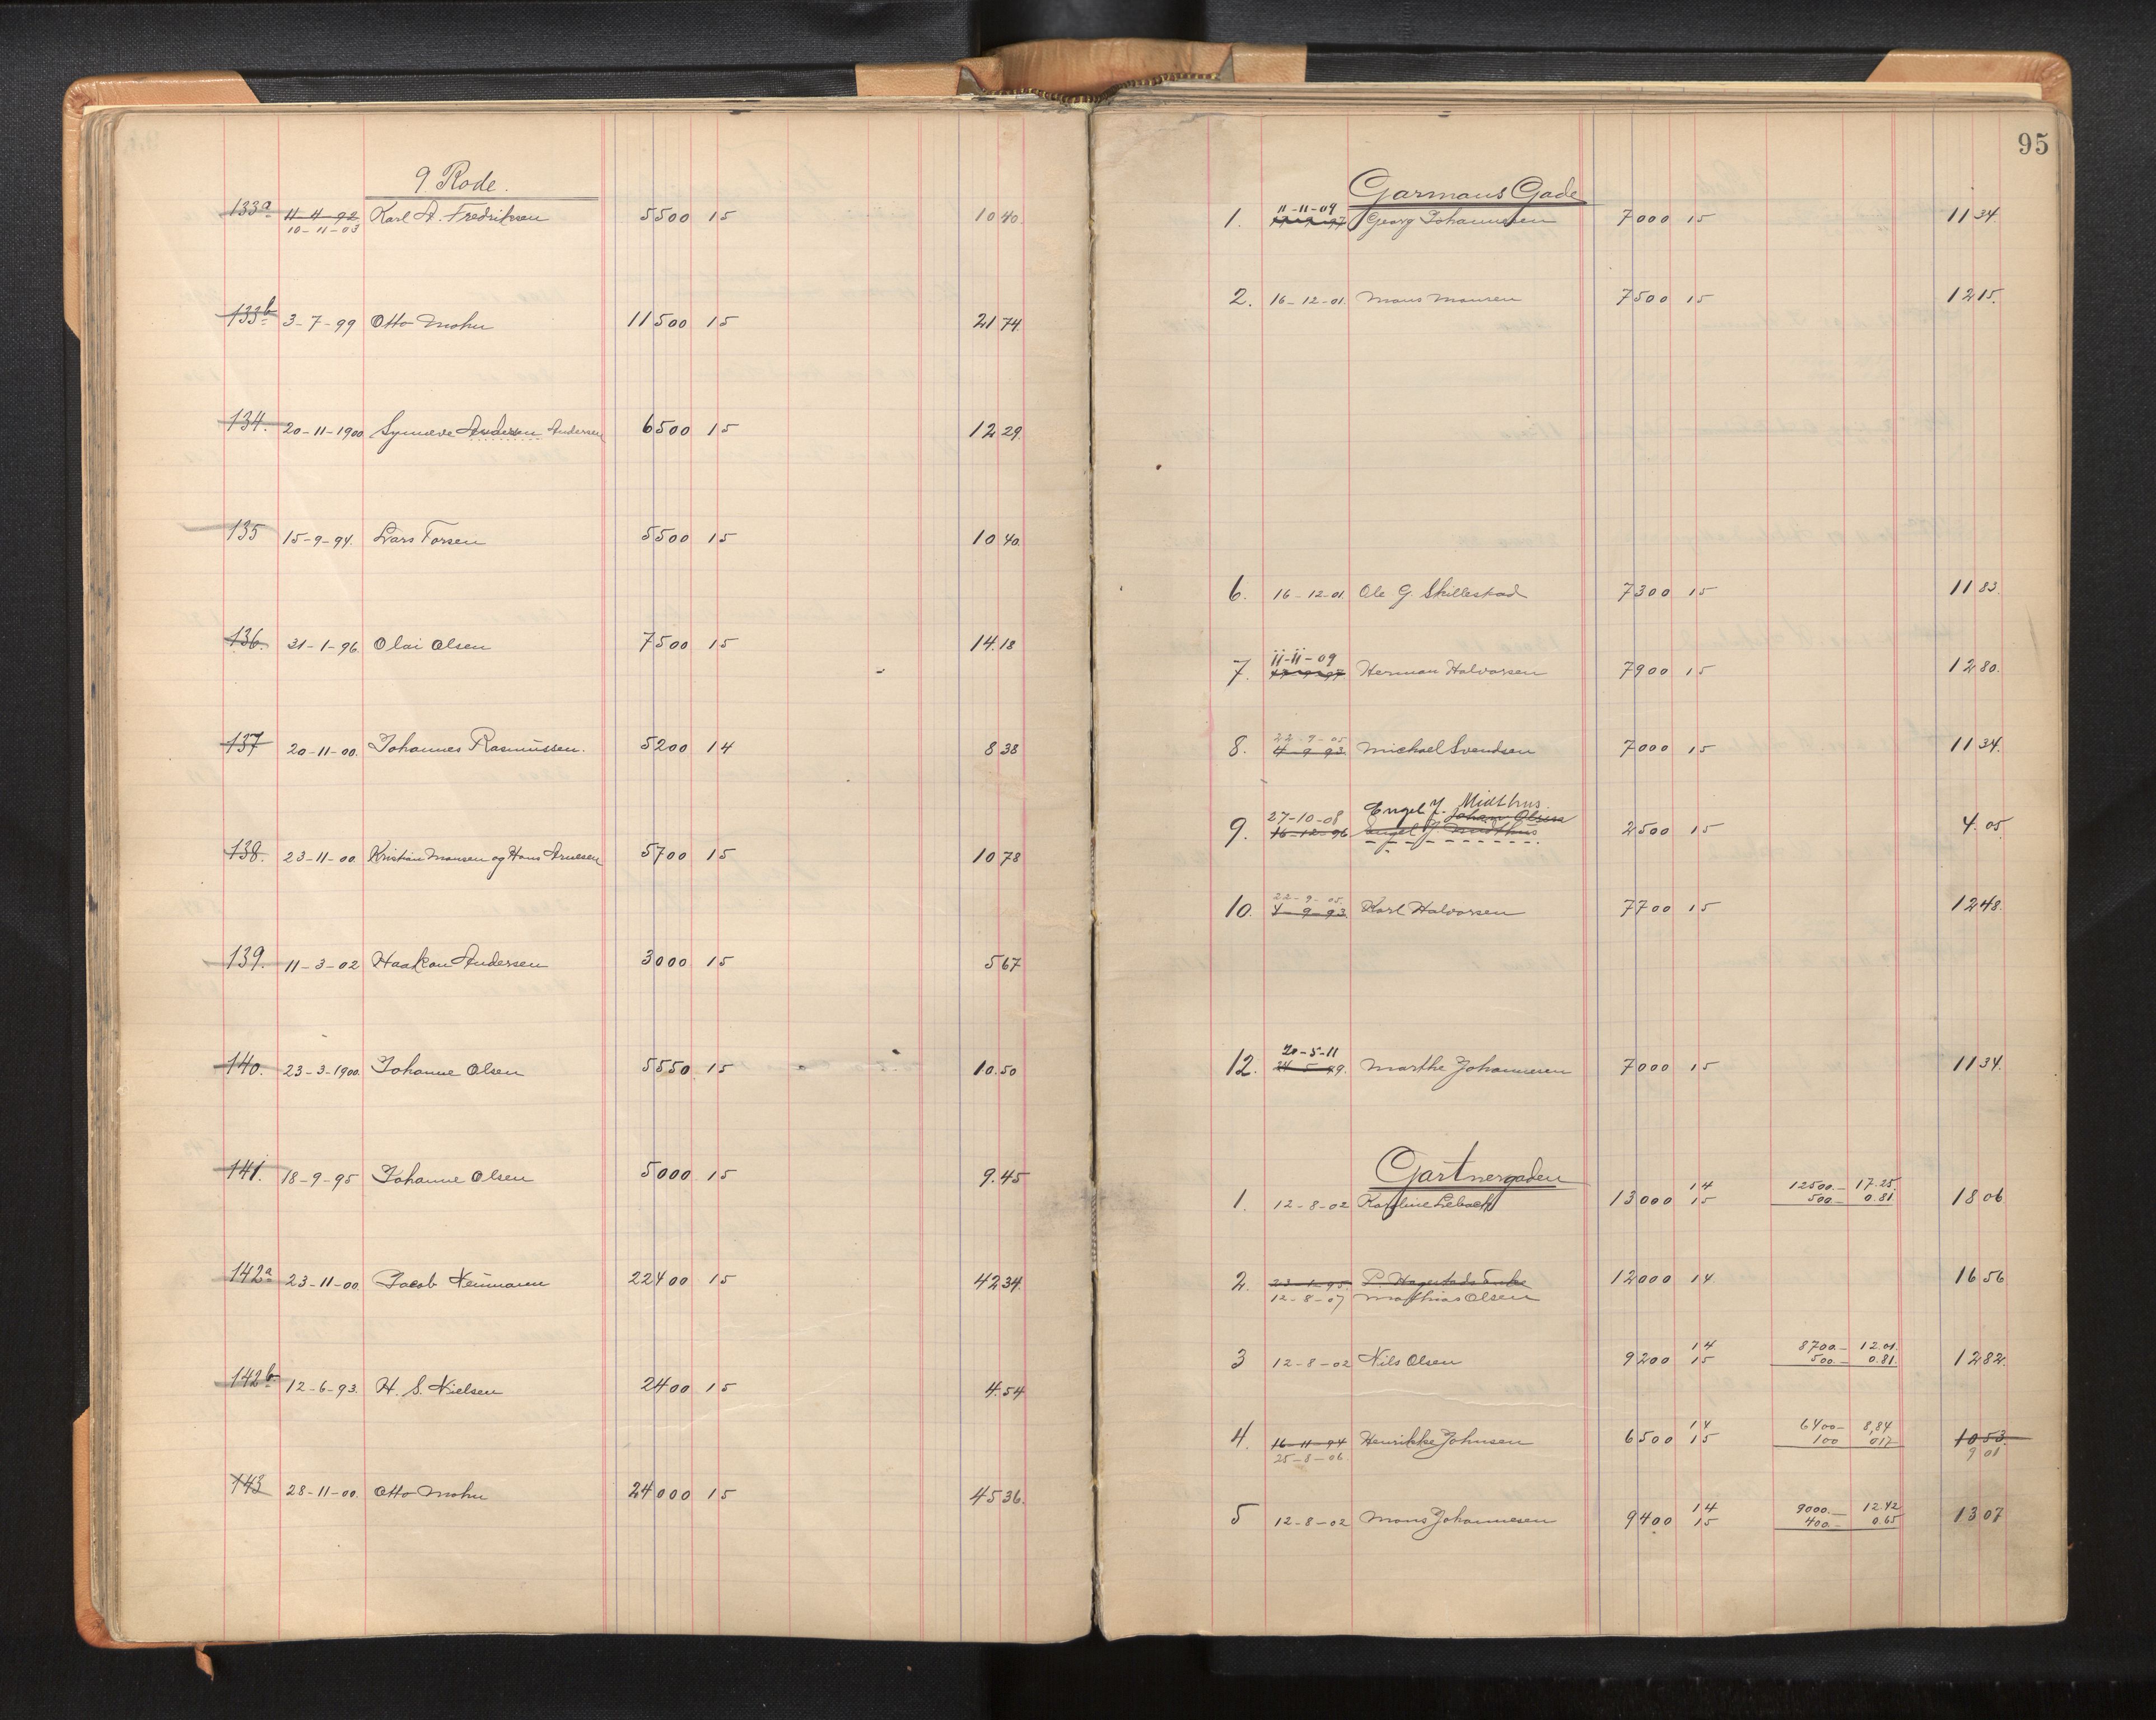 9 Rode.
133a 11-4-92 Karl A. Fredriksen 5500 15 10 40.
10-11-03
133b 3-7-99 Otto Mohn 11500 15 21 74.
134. 20-11-1900 Synneve Andersen Andersen 6500 15 12 29.
135 15-9-94. Lars Torsen 5500 15 10 40.
136. 31-1-96 Olai Olsen 7500 15 14.18
137 20-11-00. Johannes Rasmussen. 5200 14 8 38
138. 23-11-00. Kristian Monsen og Hans Arnesen 5700 15 10 78
139. 11-3-02 Haakon Andersen 3000 15 5 67
140. 23-3-1900. Johanne Olsen 5550 15 10.50
141. 18-9-95 Johanne Olsen 5000 15 9.45
142a 23-11-00. Jacob Neumann 22400 15 42 34.
142b 12-6-93. H. S. Nielsen 2400 15 4.54
143 28-11-00. Otto Mohn 24000 15 45 36.
95
Garmans Gade
11-11-09
1. Georg Johannesen 7000 15 11 34.
2. 16-12-01. Mons Monsen 7500 15 12 15.
6. 16-12-01. Ole G. Skillestad 7300 15 11 83.
11-11-09
7. Herman Halvorsen 7900 15 12 80.
22-9-05
8. 4-9 93. Michael Svendsen 7000 15 11 34.
Engel J. Midthus.
27-10-08 Johan Olsen
9. 16-12-96 Engel J. Midthus 2500 15 4.05
22-9-05.
10. 4-9-93 Karl Halvorsen 7700 15 12 48.
20-5-11
12. 24-5-99. Marthe Johannesen 7000 15 11 34.
Gartnergaden
14 12500.- 17.25.
1. 12-8-02 13000 15 500.- 0.81. 18 06
2. 12000 14 16 56
12-8-07 Mathias Olsen
14 8700.- 12.01.
3 12-8-02 Nils Olsen 9200 15 500.- 0.81. 12 82.
14 6400- 8,84
4. 16-11-94 Henrikke Johnsen 6500 15 100 017 10 53.
25-8-06. 9 01
14 9000.- 12.42
5 12-8-02 Mons Johannesen 9400 15 400.- 0.65 13 07